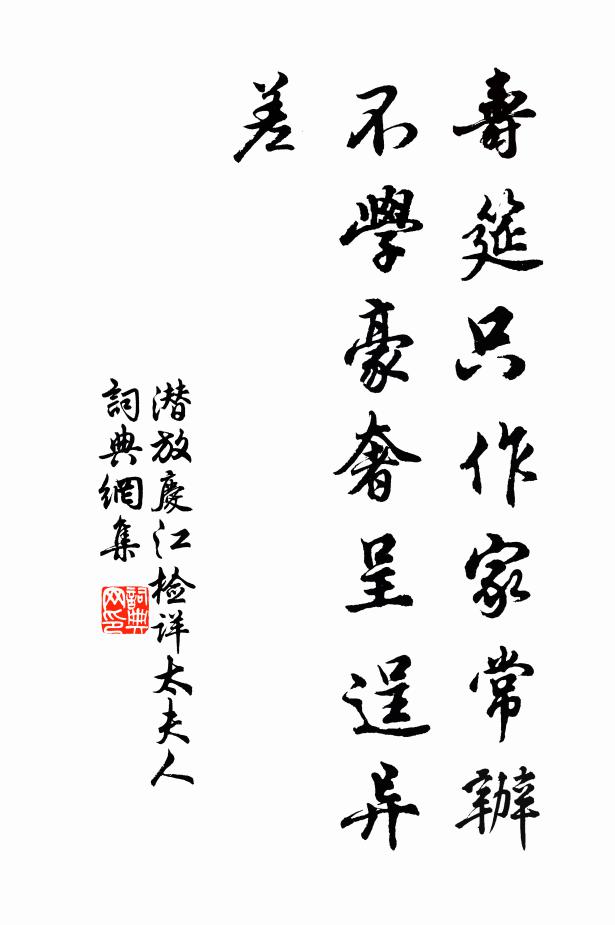 壽筵只作家常辦
不學豪奢呈逞异
差
潜放慶江檢详太夫人
詞典網集
詞典网印